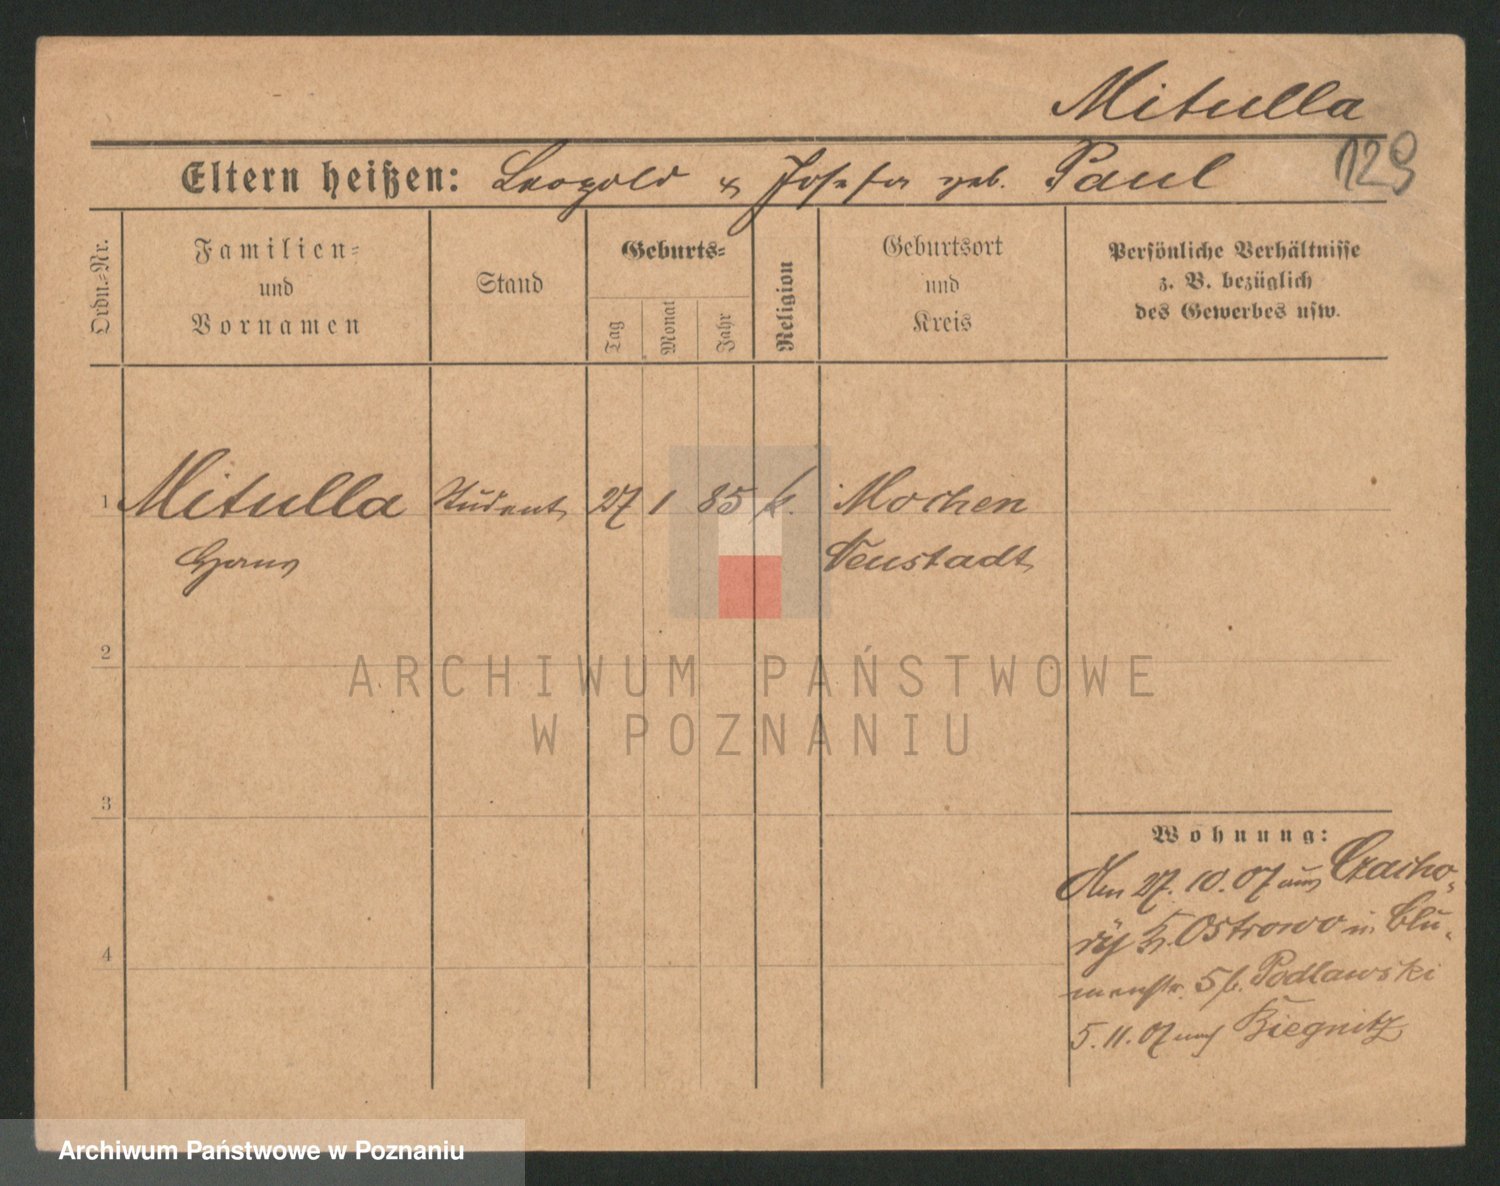 Mitulla
129
Eltern heißen: Leopold & Josefa geb. Paul
Ordn.-Nr.
Familien-
und
Vornamen
Stand
Geburts-
Tag
Monat
Jahr
Religion
Geburtsort
und
Kreis
Persönliche Verhältnisse
z. B. bezüglich
des Gewerbes usw.
1 Mitulla Student 27 1 85 k. Mochen
Hans Neustadt
2
ARCHIWUM PAŃSTWOWE
W POZNANIU
3
Wohnung:
Am 27. 10. 07 aus
Ostrowo in Blu-
menstr. 5 b. Podlawski
4
5. 11. 07 nach
Archiwum Państwowe w Poznaniu